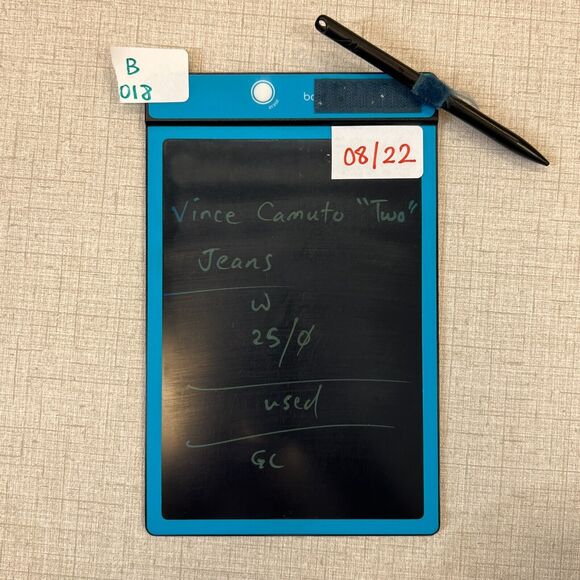 B
018
08/22
Vince Camuto "Two"
Jeans
W
25/0
used
GC